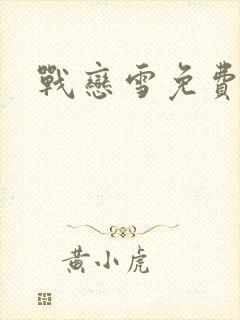 戰戀雪免費
黃小虎